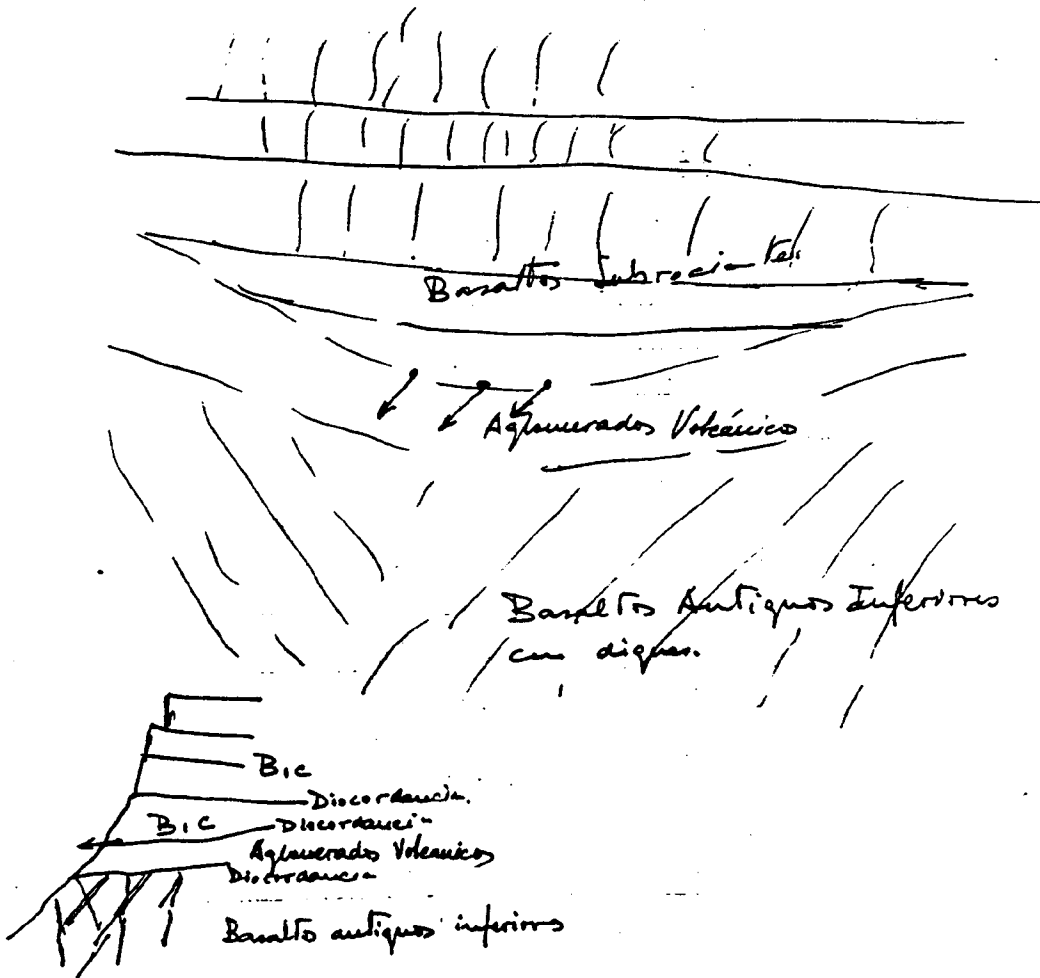 Basaltos Subrecientes
Aglomerados Volcánico
Basaltos Antiguos Inferiores
con diques.
B.I.C
Discordancia.
B.I.C
Discordancia
Aglomerados Volcanicos
Discordancia
Basalto antiguos inferiores